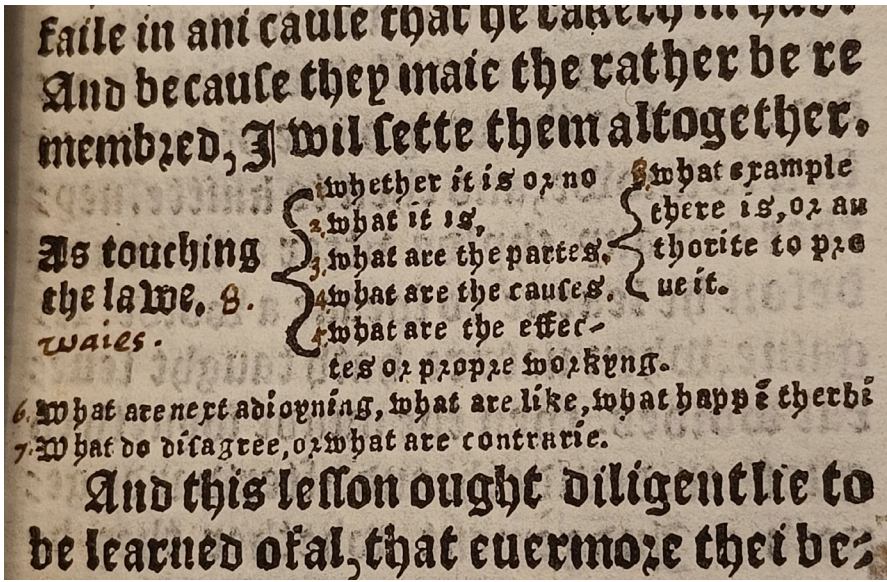 faile in ani cauſe that he taketh in
And becauſe they maie the rather be re
membred, I wil ſette them altogether.
As touching
the lawe. 8.
waies.
1 whether it is or no
2. what it is,
3. what are the partes.
4. what are the cauſes.
5. what are the effec-
tes or propre workyng.
8. what example
there is, or au
thorite to pro
ue it.
6. What are next adioyning, what are like, what happē therbi
7. What do diſagree, or what are contrarie.
And this leſſon ought diligentlie to
be learned of al, that euermore thei be-